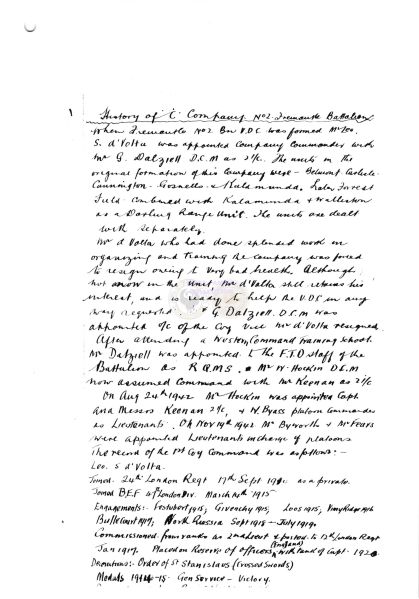 1
History of 'C' Company. No 2. Fremantle Battalion
When Fremantle No 2 Bn V.D.C was formed Mr Leo.
S. d'Volta was appointed Company Commander with
Mr G. Dalziell D.C.M as 2/c. The units in the
original formation of this Company were - Belmont Carlisle
Cannington - Gosnells - & Mundamunda. Later Forrest
Field combined with Kalamunda & Walliston
as a Darling Range Unit. The units are dealt
with separately.
Mr d Volta who had done splendid work in
organizing and training the Company was forced
to resign owing to very bad health. Although
not now in the unit, Mr d'Volta still retains his
interest, and is ready to help the V.D.C in any
way requested. G. Dalziell D.C.M was
appointed O/c of the Coy vice Mr d'Volta resigned.
After attending a Western Command training school.
Mr Dalziell was appointed to the F.T.D staff of the
Battalion as R.Q.M.S. Mr W. Hockin D.C.M
now assumed Command with Mr Keenan as 2/c
On Aug 24th 1942 Mr Hockin was appointed Capt
and Messrs Keenan 2/c, & N. Byass platoon Commander
as Lieutenants. On Nov 19th 1942 Mr Byworth & Mr Fears
were appointed Lieutenants in charge of platoons
The record of the 1st Coy Command was as follows: -
Leo. S d'Volta.
Joined. 24th London Regt 17th Sept 1912 as a private.
Joined B.E.F 47th London Div. March 14th 1915
Engagements: - Festubert 1915, Givenchy 1915, Loos 1915, Vimy Ridge 1916
Bullecourt 1917, North Russia Sept 1918 - July 1919.
Commissioned from ranks as 2nd Lieut & posted to 13th London Regt
Jan 1917. Placed on Reserve of Officers (England) with rank of Capt. 1920
Decorations: - Order of St Stanislaus (Crossed Swords)
Medals 1914-15 - Gen Service - Victory.